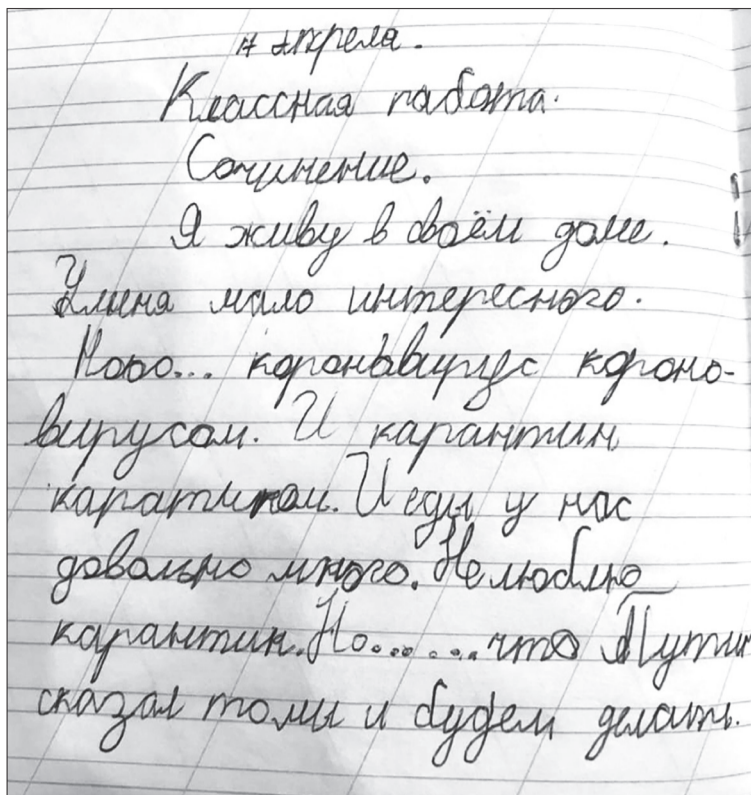 17 апреля.
Классная работа.
Сочинение.
Я живу в своём доме.
У меня мало интересного.
короновирус короно-
вирусом. И карантин
каратином. И еды у нас
довольно много. Не люблю
карантин. Но...... что Путин
сказал то мы и будем делать.